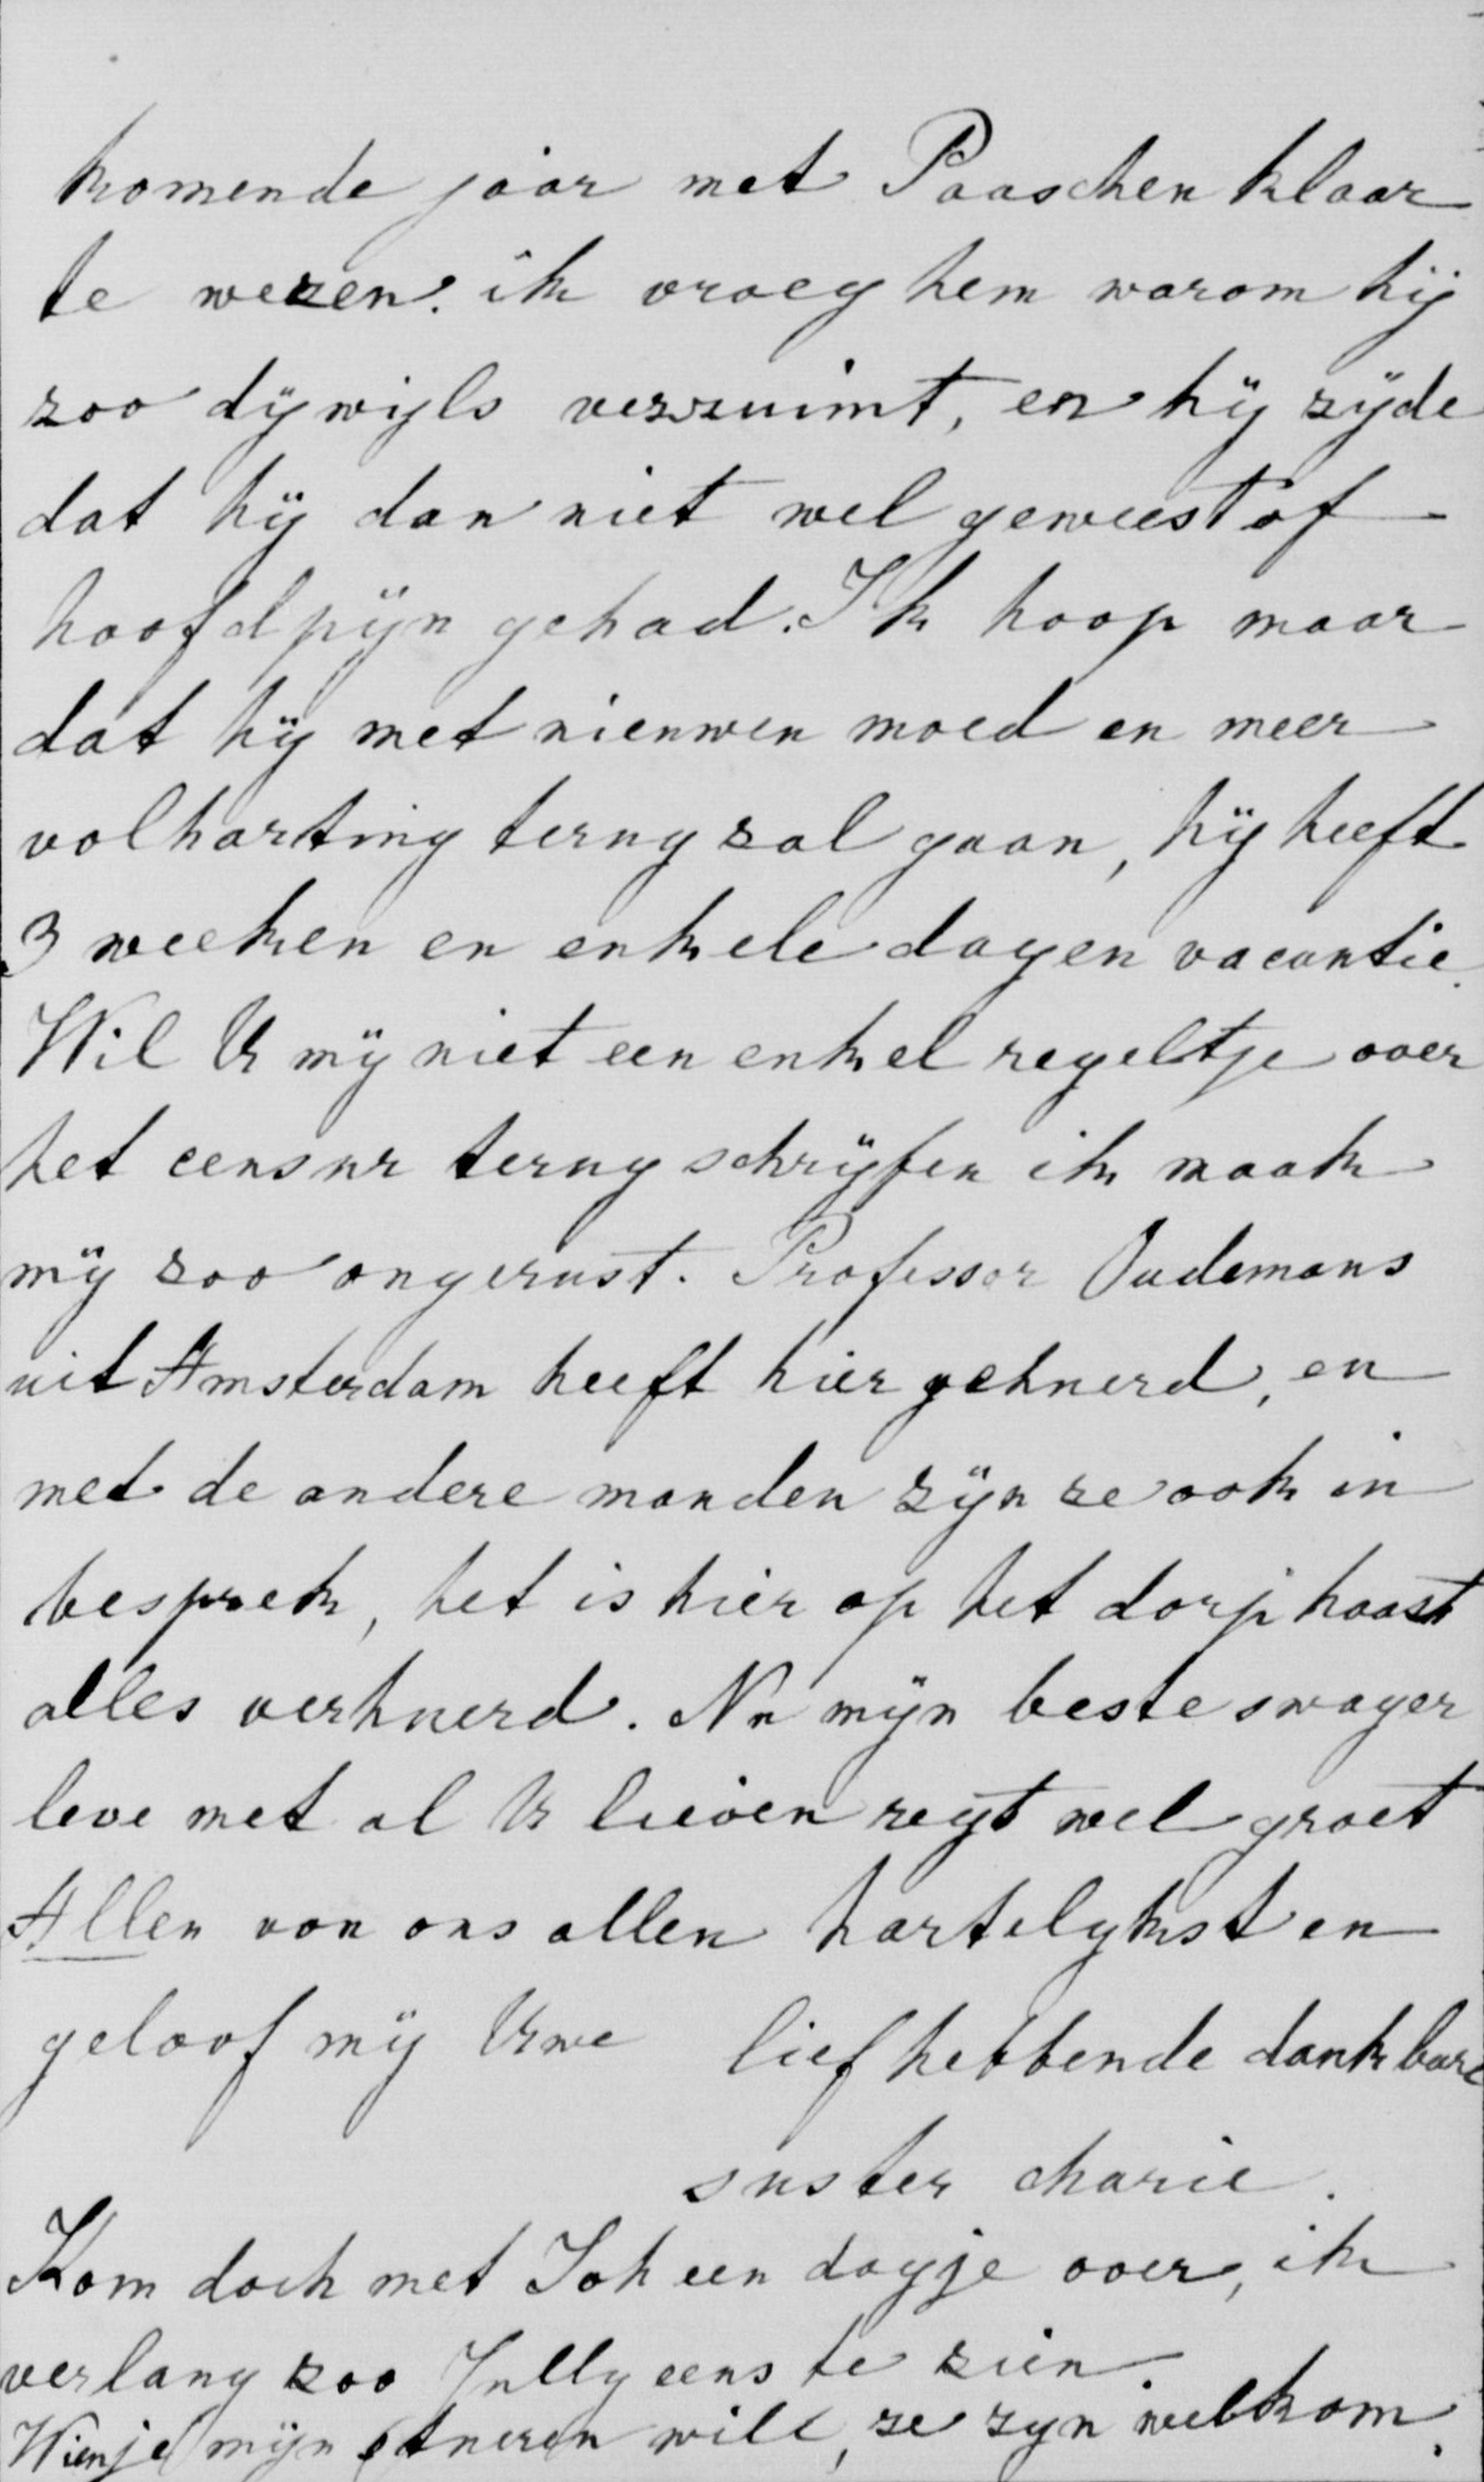 komende jaar met Paaschen klaar
te wezen. ik vroeg hem warom hij
zoo dijwijls verzuimt, en hij zijde
dat hij dan niet wel geweest of
hoofdpijn gehad. Ik hoop maar
dat hij met nieuwen moed en meer
volharting terug zal gaan, hij heeft
3 weeken en enkele dagen vacantie.
Wil U mij niet een enkel regeltje over
het censur terug schrijfen ik maak
mij zoo ongerust. Professor Oudemans
uit Amsterdam heeft hier gehuurd, en
met de andere manden zijn ze ook in
besprek, het is hier op het dorp haast
alles verhuurd. Nu mijn beste swager
leve met al U lieven regt wel groet
Allen van ons allen hartelykst en
geloof mij Uwe liefhebbende dankbare
suster Marie.
Kom doch met Joh een dagje over, ik
verlang zoo Jully eens te zien.
Wien je mijn stueren wilt, ze zyn welkom.